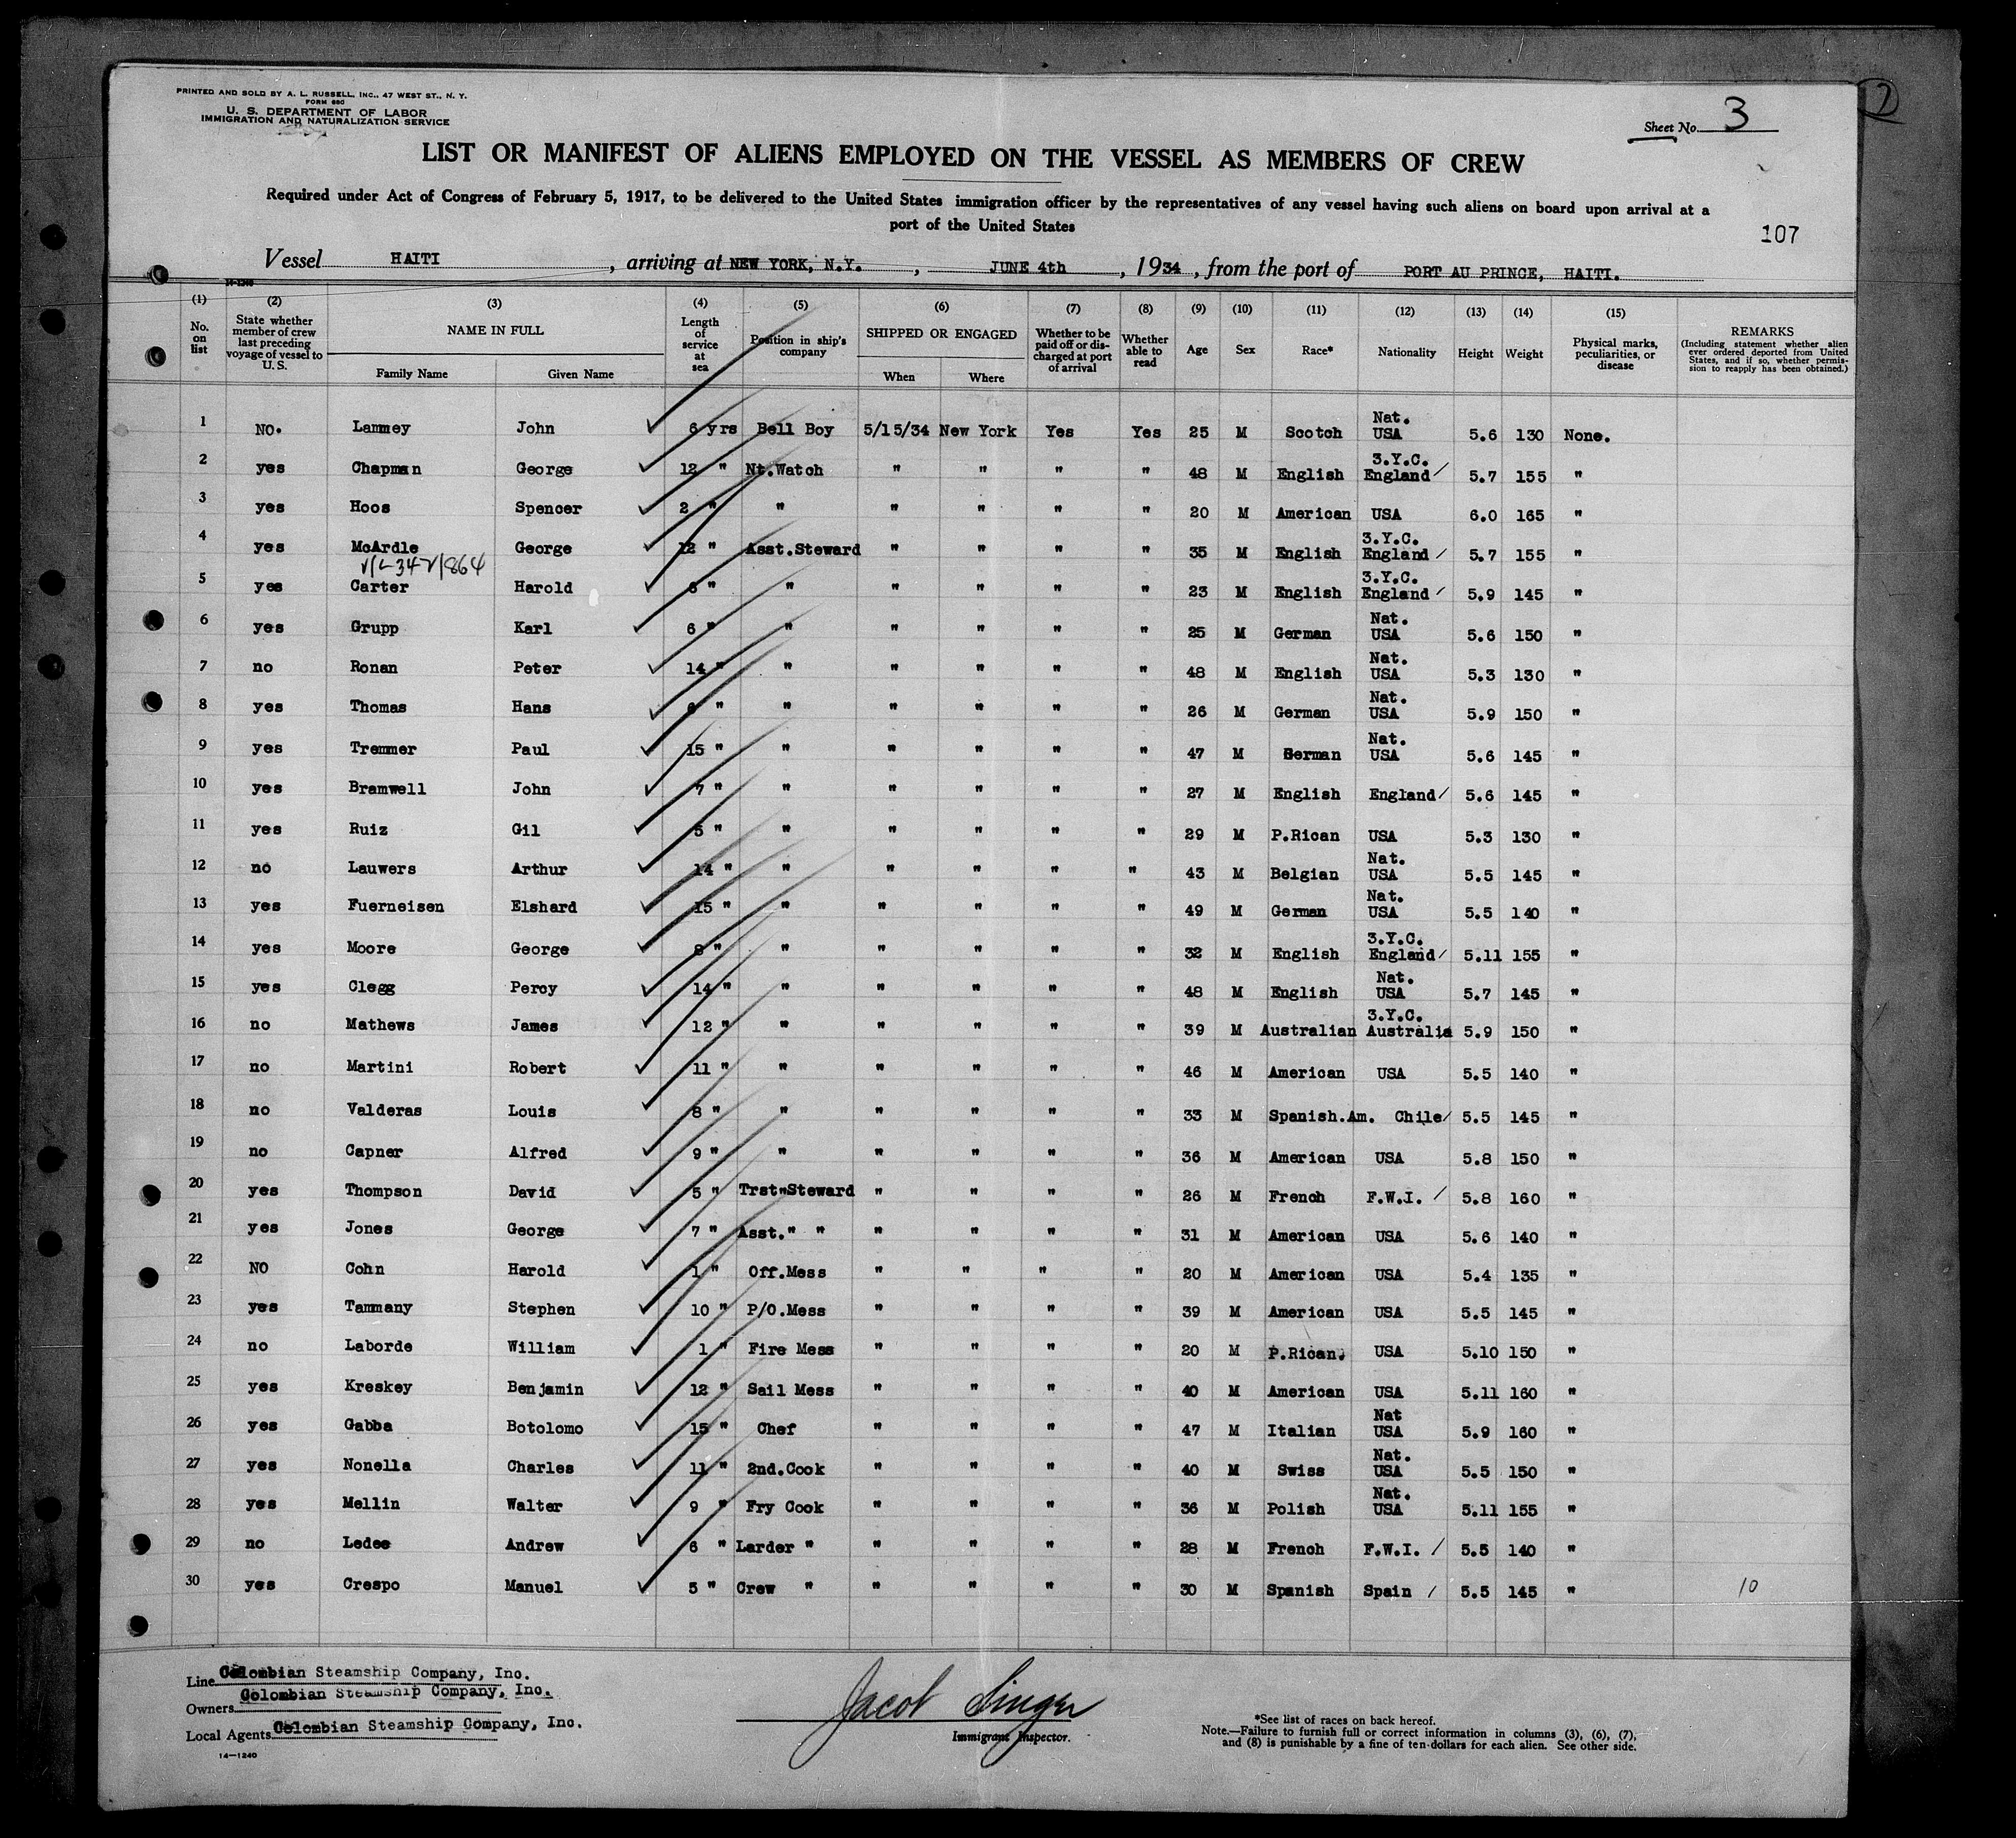 PRINTED AND SOLD BY A. L. RUSSELL, INC., 47 WEST ST., N. Y.
FORM 680
U. S. DEPARTMENT OF LABOR
IMMIGRATION AND NATURALIZATION SERVICE
Sheet No. 3
LIST OR MANIFEST OF ALIENS EMPLOYED ON THE VESSEL AS MEMBERS OF CREW
Required under Act of Congress of February 5, 1917, to be delivered to the United States immigration officer by the representatives of any vessel having such aliens on board upon arrival at a
port of the United States
107
Vessel HAITI, arriving at NEW YORK, N.Y., JUNE 4th, 1934, from the port of PORT AU PRINCE, HAITI.
14-1240
(1) No. on list (2) State whether member of crew last preceding voyage of vessel to U. S. (3) NAME IN FULL Family Name Given Name (4) Length of service at sea (5) Position in ship's company (6) SHIPPED OR ENGAGED When Where (7) Whether to be paid off or discharged at port of arrival (8) Whether able to read (9) Age (10) Sex (11) Race* (12) Nationality (13) Height (14) Weight (15) Physical marks, peculiarities, or disease REMARKS (Including statement whether alien ever ordered deported from United States, and if so, whether permission to reapply has been obtained.)
1 NO. Lammey John 6 yrs Bell Boy 5/15/34 New York Yes Yes 25 M Scotch Nat. USA 5.6 130 None.
2 yes Chapman George 12 " Nt.Watch " " " " 48 M English 3.Y.C. England 5.7 155 "
3 yes Hoos Spencer 2 " " " " " " 20 M American USA 6.0 165 "
4 yes McArdle George 12 " Asst.Steward " " " " 35 M English 3.Y.C. England 5.7 155 "
5 yes Carter Harold 6 " " " " " " 23 M English 3.Y.C. England 5.9 145 "
6 yes Grupp Karl 6 " " " " " " 25 M German Nat. USA 5.6 150 "
7 no Ronan Peter 14 " " " " " " 48 M English Nat. USA 5.3 130 "
8 yes Thomas Hans 6 " " " " " " 26 M German Nat. USA 5.9 150 "
9 yes Tremmer Paul 15 " " " " " " 47 M German Nat. USA 5.6 145 "
10 yes Bramwell John 7 " " " " " " 27 M English England 5.6 145 "
11 yes Ruiz Gil 5 " " " " " " 29 M P.Rican USA 5.3 130 "
12 no Lauwers Arthur 14 " " " " " " 43 M Belgian Nat. USA 5.5 145 "
13 yes Fuerneisen Elshard 15 " " " " " " 49 M German Nat. USA 5.5 140 "
14 yes Moore George 8 " " " " " " 32 M English 3.Y.C. England 5.11 155 "
15 yes Clegg Percy 14 " " " " " " 48 M English Nat. USA 5.7 145 "
16 no Mathews James 12 " " " " " " 39 M Australian 3.Y.C. Australia 5.9 150 "
17 no Martini Robert 11 " " " " " " 46 M American USA 5.5 140 "
18 no Valderas Louis 8 " " " " " " 33 M Spanish.Am. Chile 5.5 145 "
19 no Capner Alfred 9 " " " " " " 36 M American USA 5.8 150 "
20 yes Thompson David 5 " Trst"Steward " " " " 26 M French F.W.I. 5.8 160 "
21 yes Jones George 7 " Asst." " " " " " 31 M American USA 5.6 140 "
22 NO Cohn Harold 1 " Off.Mess " " " " 20 M American USA 5.4 135 "
23 yes Tammany Stephen 10 " P/O.Mess " " " " 39 M American USA 5.5 145 "
24 no Laborde William 1 " Fire Mess " " " " 20 M P.Rican. USA 5.10 150 "
25 yes Kreskey Benjamin 12 " Sail Mess " " " " 40 M American USA 5.11 160 "
26 yes Gabba Botolomo 15 " Chef " " " " 47 M Italian Nat USA 5.9 160 "
27 yes Nonella Charles 11 " 2nd.Cook " " " " 40 M Swiss Nat. USA 5.5 150 "
28 yes Mellin Walter 9 " Fry Cook " " " " 36 M Polish Nat. USA 5.11 155 "
29 no Ledee Andrew 6 " Larder " " " " " 28 M French F.W.I. 5.5 140 "
30 yes Crespo Manuel 5 " Crew " " " " " 30 M Spanish Spain 5.5 145 " 10
Line Colombian Steamship Company, Inc.
Owners Colombian Steamship Company, Inc.
Local Agents Colombian Steamship Company, Inc.
14—1240
Jacob Singer
Immigrant Inspector.
*See list of races on back hereof.
Note.—Failure to furnish full or correct information in columns (3), (6), (7),
and (8) is punishable by a fine of ten dollars for each alien. See other side.